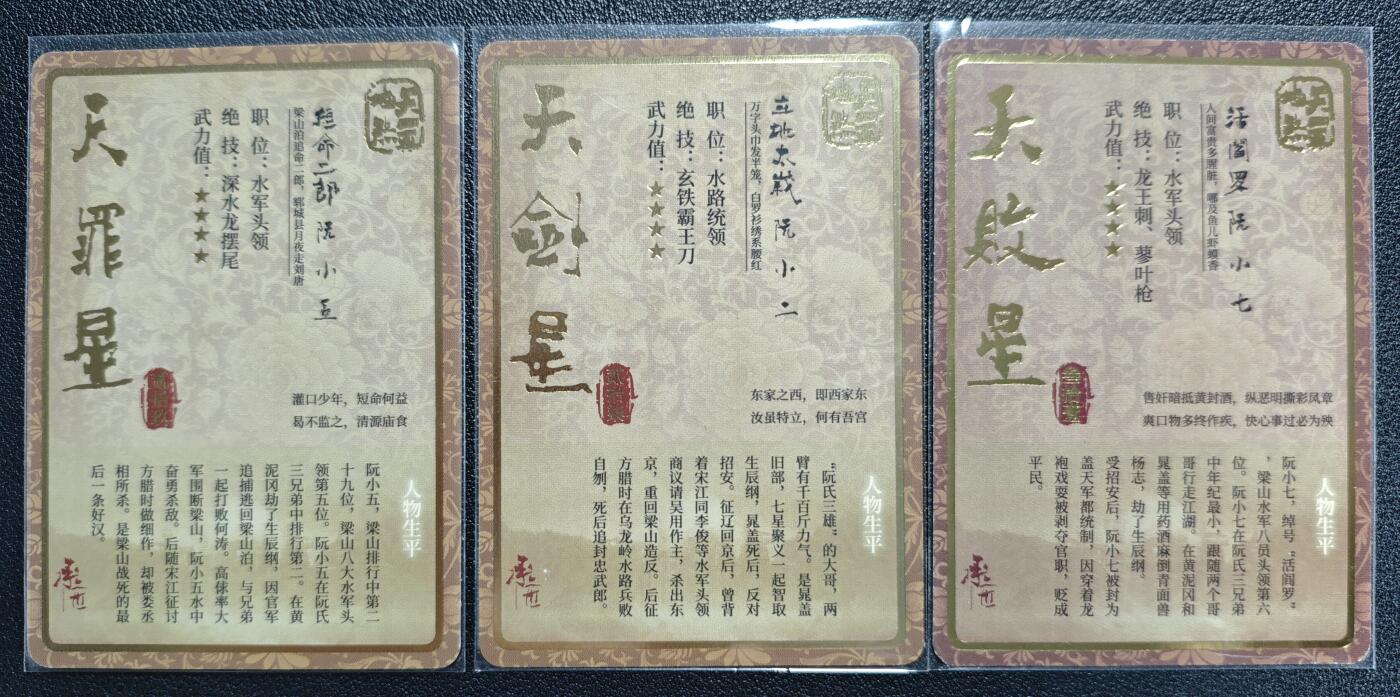 天罪星
贰拾玖
绝命二郎 阮小五
梁山泊追命二郎，郓城县月夜走刘唐
职 位：水军头领
绝 技：深水龙摆尾
武力值：★★★★
灌口少年，短命何益
曷不监之，清源庙食
人物生平
阮小五，梁山排行中第二
十九位，梁山八大水军头
领第五位。阮小五在阮氏
三兄弟中排行第二。在黄
泥冈劫了生辰纲，因官军
追捕逃回梁山泊，与兄弟
一起打败何涛。高俅率大
军围断梁山，阮小五水中
奋勇杀敌。后随宋江征讨
方腊时做细作，却被娄丞
相所杀。是梁山战死的最
后一条好汉。
天剑星
立地太歲 阮小二
万字头巾发半笼，白罗衫绣系腰红
职 位：水路统领
绝 技：玄铁霸王刀
武力值：★★★★
东家之西，即西家东
汝虽特立，何有吾宫
人物生平
“阮氏三雄”的大哥，两
臂有千百斤力气。是晁盖
旧部，七星聚义一起智取
生辰纲，晁盖死后，反对
招安。征辽回京后，曾背
着宋江同李俊等水军头领
商议请吴用作主，杀出东
京，重回梁山造反。后征
方腊时在乌龙岭水路兵败
自刎，死后追封忠武郎。
天败星
叁拾壹
活阎罗 阮小七
人间富贵多腥脏，哪及鱼儿虾蟆香
职 位：水军头领
绝 技：龙王刺、蓼叶枪
武力值：★★★★
售奸暗抵黄封酒，纵恶明撕彩凤章
爽口物多终作疾，快心事过必为殃
人物生平
阮小七，绰号“活阎罗”
，梁山水军八员头领第六
位。阮小七在阮氏三兄弟
中年纪最小，跟随两个哥
哥行走江湖。在黄泥冈和
晁盖等用药酒麻倒青面兽
杨志，劫了生辰纲。
受招安后，阮小七被封为
盖天军都统制，因穿着龙
袍戏耍被剥夺官职，贬成
平民。